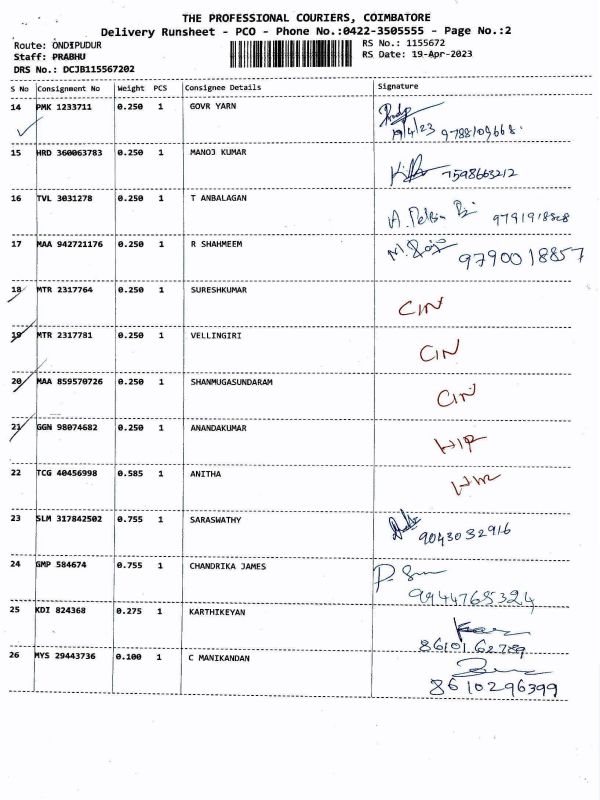 THE PROFESSIONAL COURIERS, COIMBATORE
Delivery Runsheet - PCO - Phone No.:0422-3505555 - Page No.:2
Route: ONDIPUDUR RS No.: 1155672
Staff: PRABHU RS Date: 19-Apr-2023
DRS No.: DCJB115567202
S No Consignment No Weight PCS Consignee Details Signature
14 PMK 1233711 0.250 1 GOVR YARN
19/4/23 9788109668
15 HRD 360063783 0.250 1 MANOJ KUMAR
7598663212
16 TVL 3031278 0.250 1 T ANBALAGAN
9791918828
17 MAA 942721176 0.250 1 R SHAHMEEM
9790018857
18 MTR 2317764 0.250 1 SURESHKUMAR
CIN
19 MTR 2317781 0.250 1 VELLINGIRI
CIN
20 MAA 859570726 0.250 1 SHANMUGASUNDARAM
CIN
21 GGN 98074682 0.250 1 ANANDAKUMAR
22 TCG 40456998 0.585 1 ANITHA
23 SLM 317842502 0.755 1 SARASWATHY
9043032916
24 GMP 584674 0.755 1 CHANDRIKA JAMES
9944765324
25 KDI 824368 0.275 1 KARTHIKEYAN
8610162789
26 MYS 29443736 0.100 1 C MANIKANDAN
8610296399